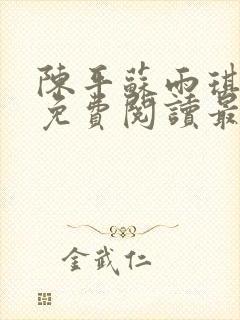 陳平蘇雨琪
免費閱讀最
金武仁